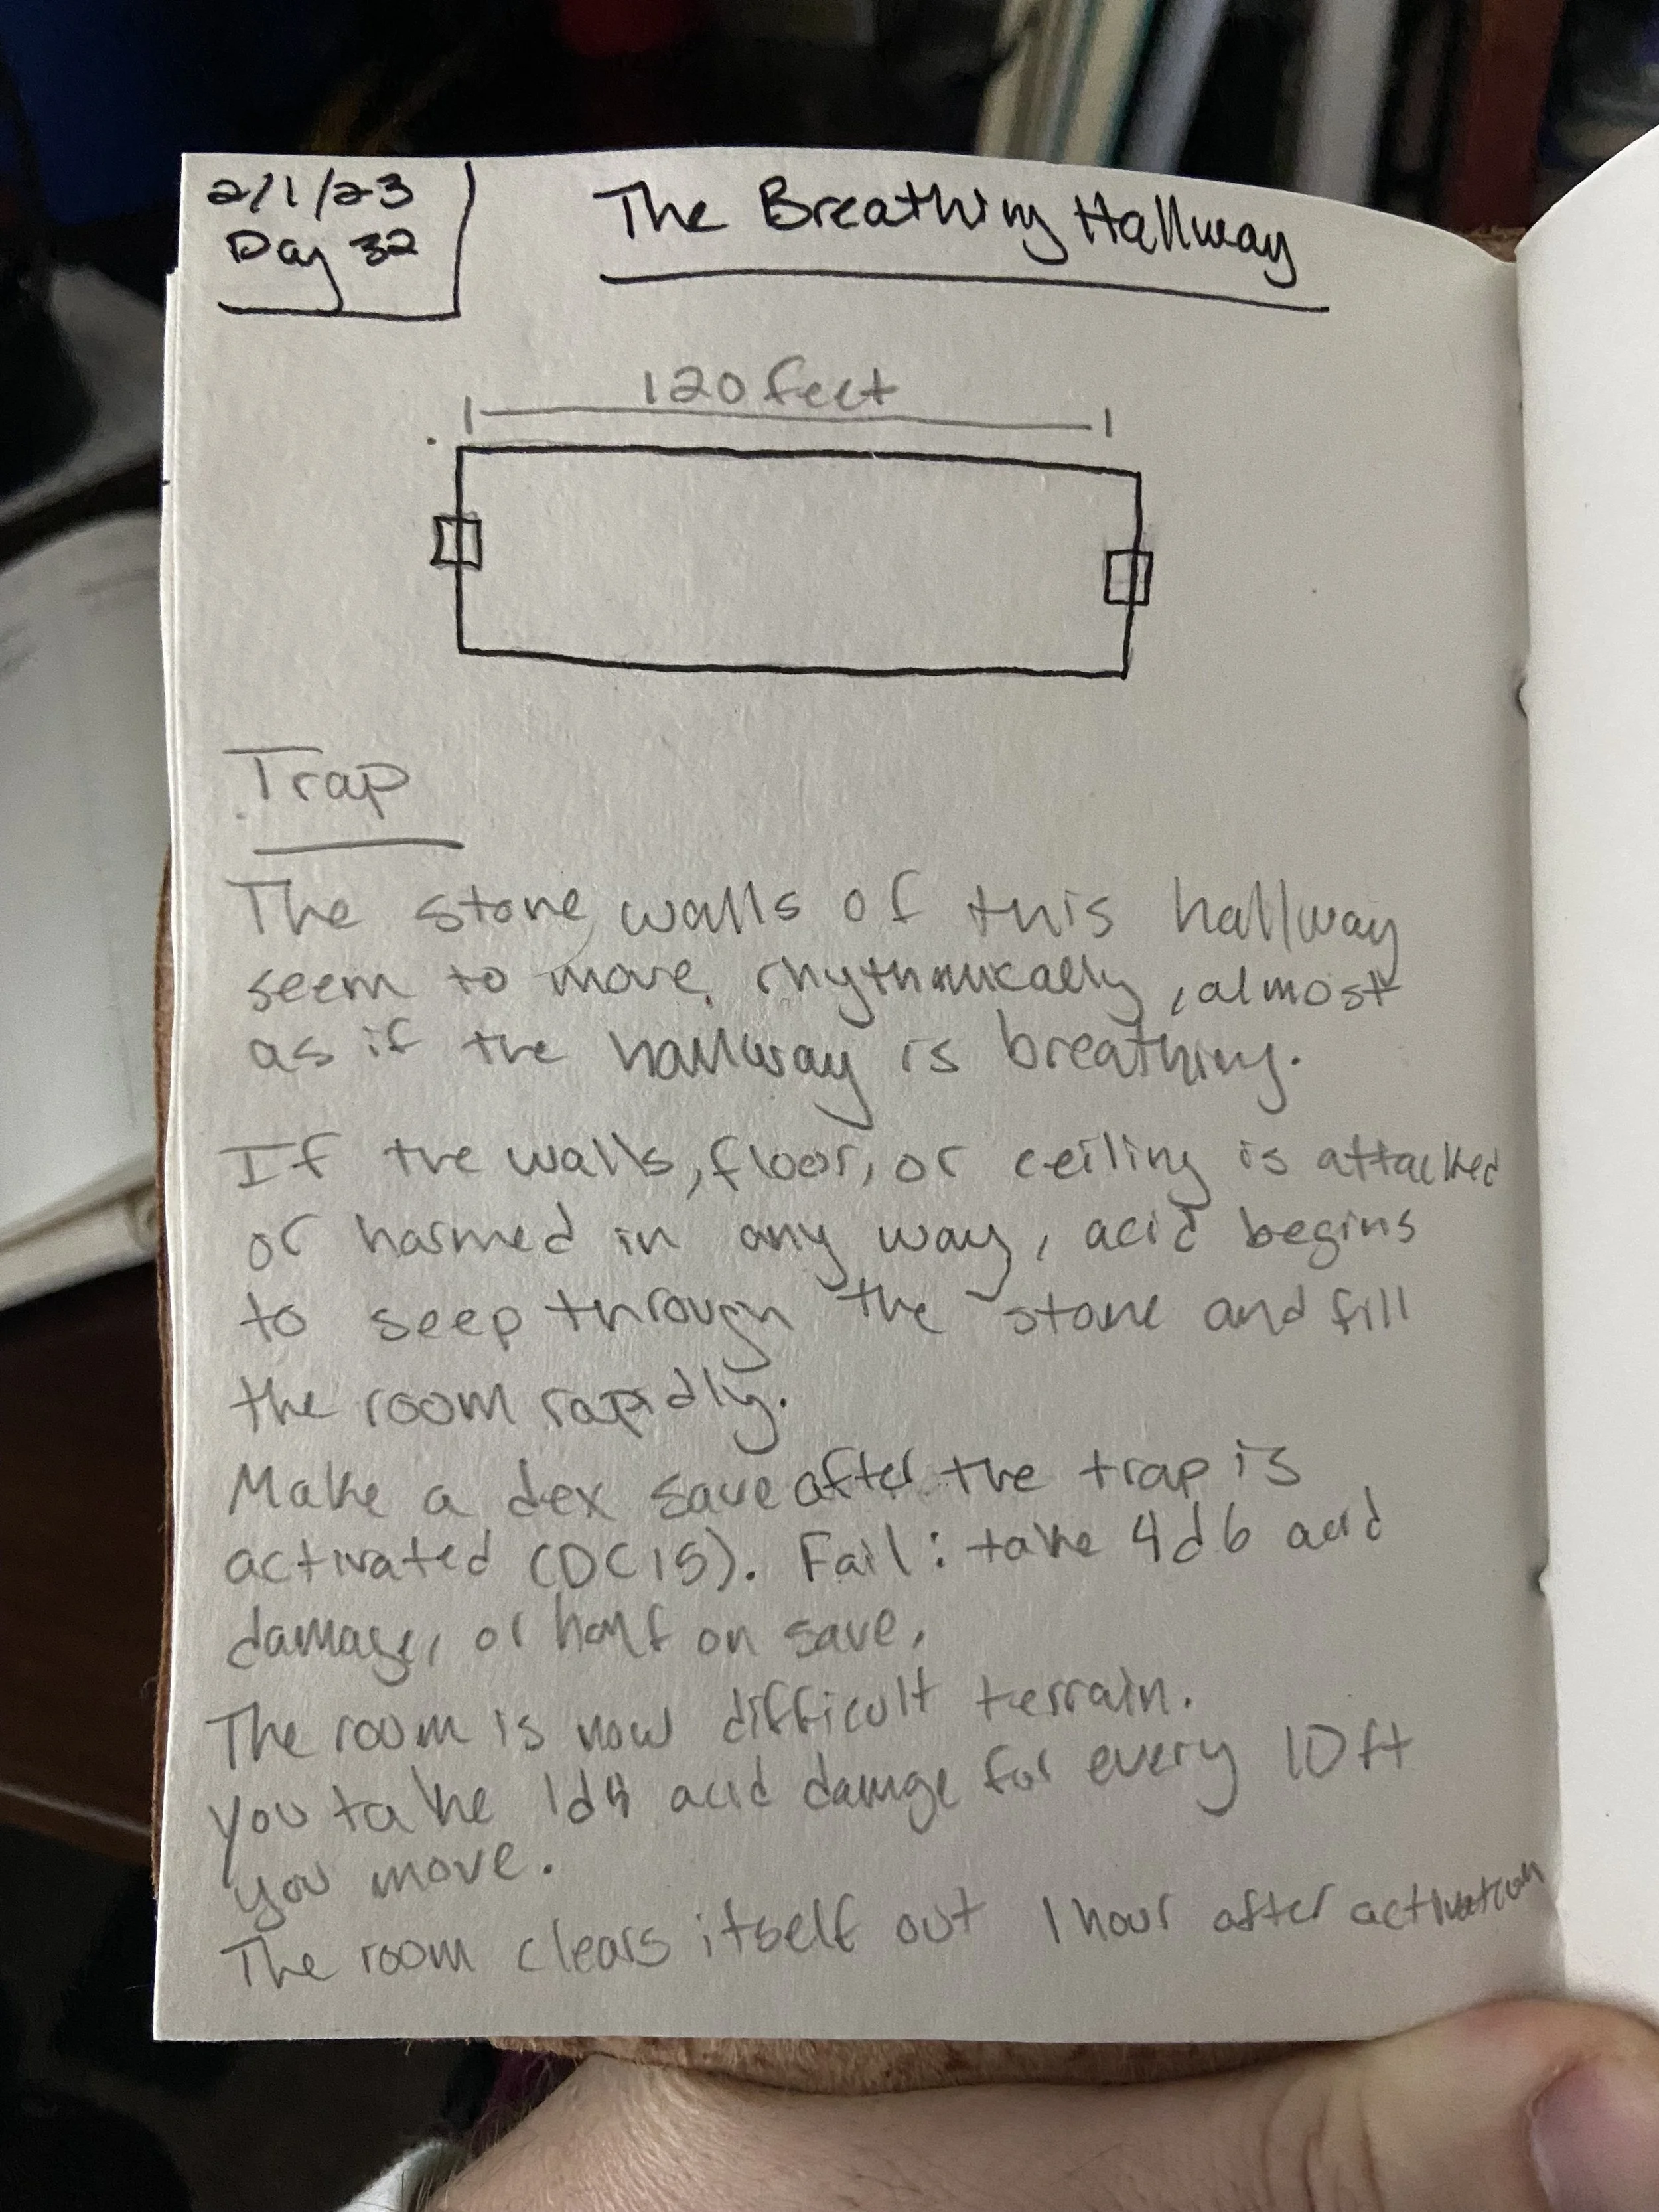 2/1/23
Day 32
The Breathing Hallway
120 feet
Trap
The stone walls of this hallway
seem to move rhythmically, almost
as if the hallway is breathing.
If the walls, floor, or ceiling is attacked
or harmed in any way, acid begins
to seep through the stone and fill
the room rapidly.
Make a dex save after the trap is
activated (DC15). Fail: take 4d6 acid
damage, or half on save.
The room is now difficult terrain.
You take 1d4 acid damge for every 10ft
you move.
The room clears itself out 1 hour after activation